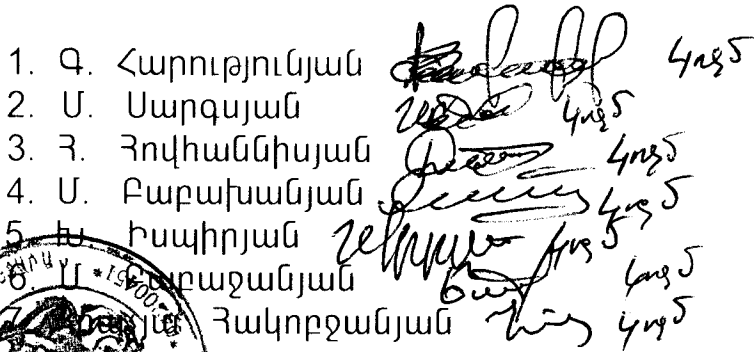 1. Գ. Հարությունյան կողմ
2. Մ. Սարգսյան կողմ
3. Հ. Հովհաննիսյան կողմ
4. Մ. Բաբախանյան կողմ
5. Խ. Իսպիրյան կողմ
6. Մ. կողմ
7. Հակոբջանյան կողմ
00451